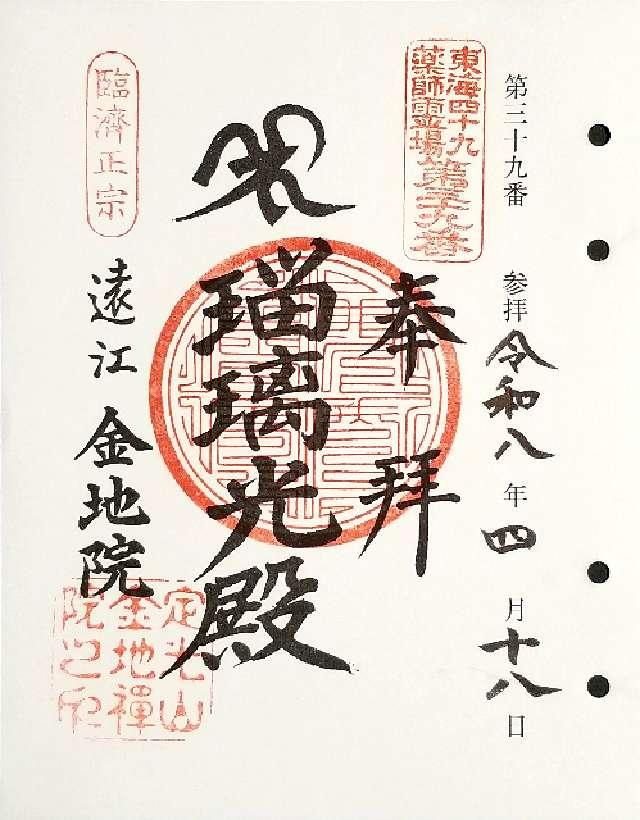 第三十九番
参拝 令和八年四月十八日
東海四十九
薬師霊場
第三十九番
奉拝
瑠璃光殿
臨済正宗
遠江 金地院
定光山
金地禅
院之印